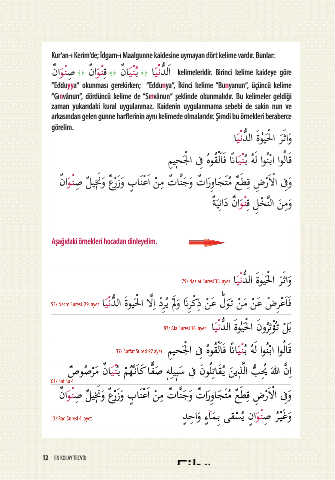 Kur'an-ı Kerim'de; İdgam-ı Maalgunne kaidesine uymayan dört kelime vardır. Bunlar:
اَلدُّنْيَا ٭٭ بُنْيَانٌ ٭٭ قِنْوَانٌ ٭٭ صِنْوَانٌ kelimeleridir. Birinci kelime kaideye göre
"Edduyya" okunması gerekirken; "Eddunya", İkinci kelime "Bunyanun", üçüncü kelime
"Gınvânun", dördüncü kelime de "Sınvânun" şeklinde okunmalıdır. Bu kelimeler geldiği
zaman yukarıdaki kural uygulanmaz. Kaidenin uygulanmama sebebi de sakin nun ve
arkasından gelen gunne harflerinin aynı kelimede olmalarıdır. Şimdi bu örnekleri beraberce
görelim.
وَاٰثَرَ الْحَيٰوةَ الدُّنْيَا
قَالُوا ابْنُوا لَهُ بُنْيَانًا فَاَلْقُوهُ فِى الْجَحِيمِ
وَفِى الْاَرْضِ قِطَعٌ مُتَجَاوِرَاتٌ وَجَنَّاتٌ مِنْ اَعْنَابٍ وَزَرْعٌ وَنَخِيلٌ صِنْوَانٌ
وَمِنَ النَّخْلِ قِنْوَانٌ دَانِيَةٌ
Aşağıdaki örnekleri hocadan dinleyelim.
وَاٰثَرَ الْحَيٰوةَ الدُّنْيَا
فَاَعْرِضْ عَنْ مَنْ تَوَلّٰى عَنْ ذِكْرِنَا وَلَمْ يُرِدْ اِلَّا الْحَيٰوةَ الدُّنْيَا
بَلْ تُؤْثِرُونَ الْحَيٰوةَ الدُّنْيَا
قَالُوا ابْنُوا لَهُ بُنْيَانًا فَاَلْقُوهُ فِى الْجَحِيمِ
اِنَّ اللهَ يُحِبُّ الَّذِينَ يُقَاتِلُونَ فِى سَبِيلِهِ صَفًّا كَاَنَّهُمْ بُنْيَانٌ مَرْصُوصٌ
وَفِى الْاَرْضِ قِطَعٌ مُتَجَاوِرَاتٌ وَجَنَّاتٌ مِنْ اَعْنَابٍ وَزَرْعٌ وَنَخِيلٌ صِنْوَانٌ
وَغَيْرُ صِنْوَانٍ يُسْقٰى بِمَاءٍ وَاحِدٍ
12